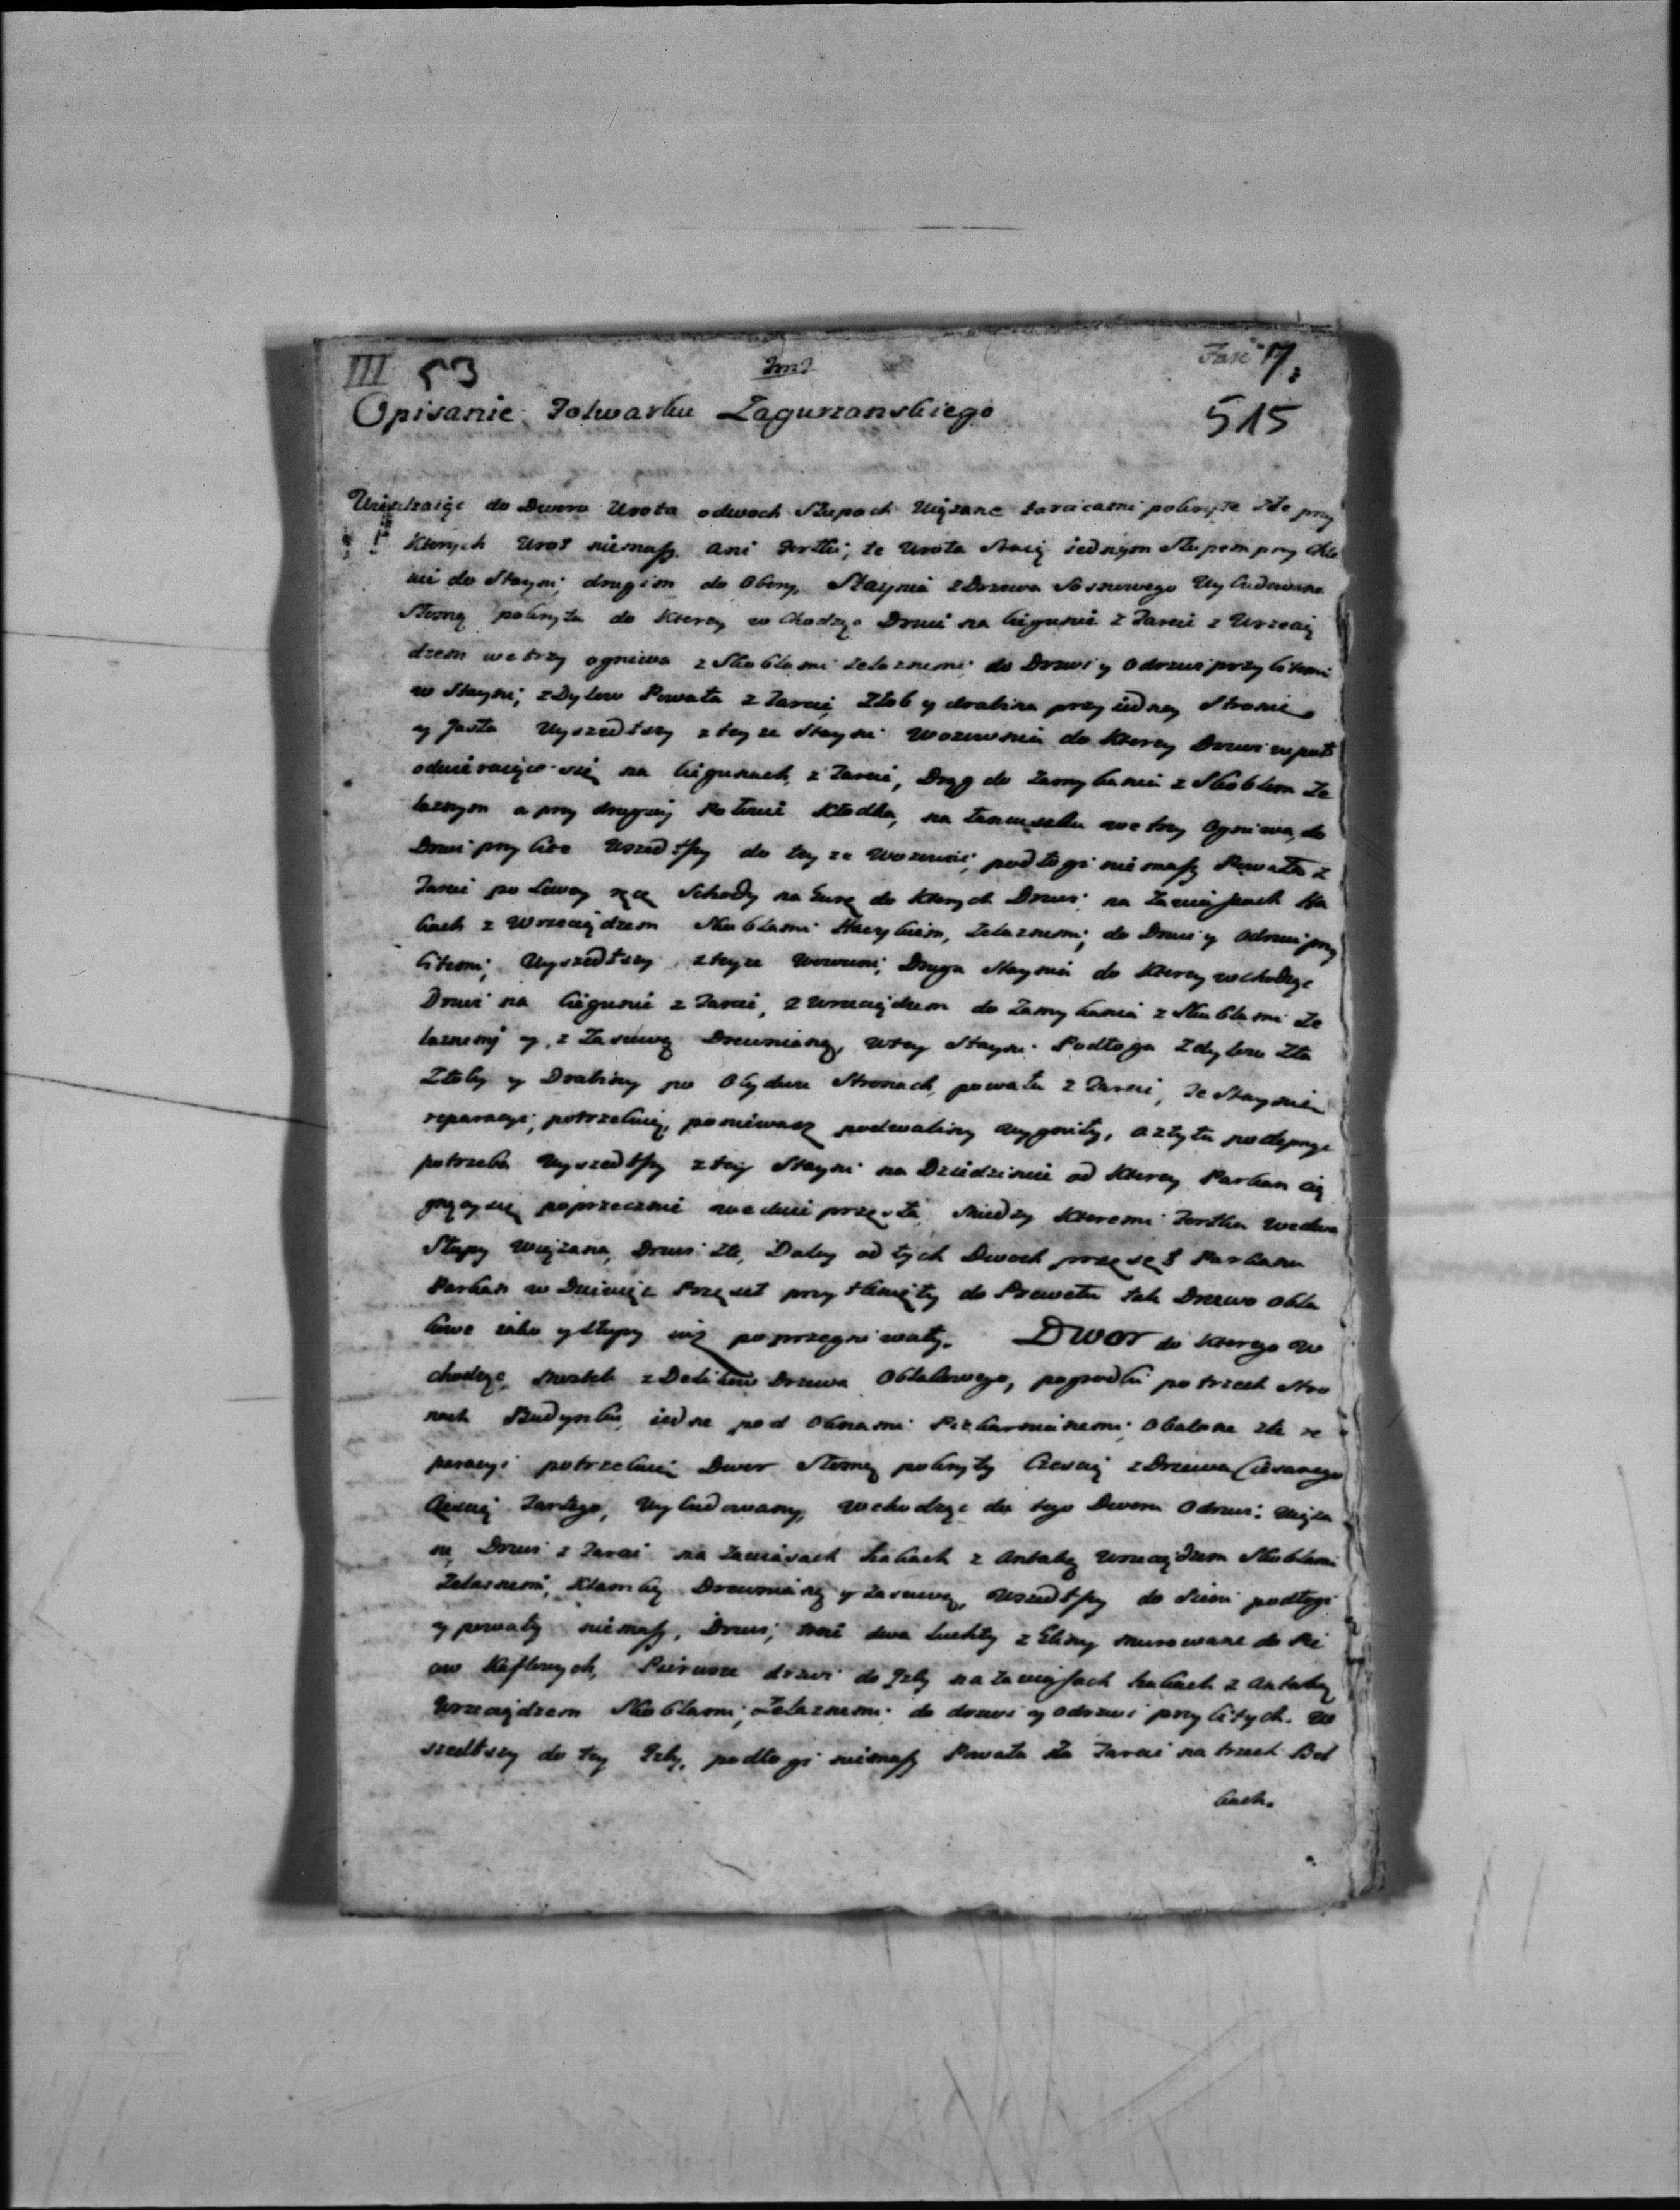 III 53
Fasc 17.
Opisanie Folwarku Zagurzanskiego
515
Wiezdzaiąc do Dworu Wrota odwoch Słupach Wiązane tarcicami pokryte złe przy
ktorych Wrot niemasz ani Fortki, te Wrota Stoią iednym Słupem przy
nie do Stayni, drugiem do Obory, Staynia z Drzewa Sosnowego Wybudowana
Słomą pokryta do ktorey wchodząc Drzwi na biegunie z Tarcic z Wrzecią
dzem we trzy ogniwa z Skoblami zelaznemi do Drzwi y Odrzwi przybitemi
w Stayni z Dylow Powała z Tarcic Złob y drabina przy iedney Stronie
y Jasła Wyszedłszy z teyze Stayni Wozownia do ktorey Drzwi wpoł
odwieraiące się na biegunach z Tarcic, Drąg do Zamykania z Skoblem Ze
laznym a przy drugiey Połowie Kłodka, na łancuszku we trzy Ogniwa, do
Drzwi przybite Wszedłszy do teyze Wozowni podłogi niemasz Powała z
Tarcic po Lewey ręce Schody na Gurę do ktorych Drzwi na Zawiasach Ha
kach z Wrzeciądzem Skoblami Haczykiem, Zelaznemi, do Drzwi y Odrzwi przy
bitemi, Wyszedłszy z teyze Wozowni, Druga Staynia do ktorey wchodząc
Drzwi na biegunie z Tarcic, z Wrzeciądzem do Zamykania z Skoblami Ze
laznemi y z Zasuwą Drewnianą, w tey Stayni Podłoga z dylow Zła
Złoby y Drabiny po Obydwu Stronach, powała z Tarcic, Te Staynia
reparacyi potrzebuie, poniewasz podwaliny wygniły, a z tyłu podeprzec
potrzeba Wyszedłszy z tey Stayni na Dziedziniec od ktorey Parkan cią
gnący się poprzecznie we dwie przęsła, Miedzy ktoremi Fortka wedwa
Słupy Wiązana, Drzwi złe, Daley od tych Dwoch przęseł Parkanu
Parkan w Dziewięc Przęseł przytknięty do Prewetu tak Drzewo Obla
kowe iako y słupy iuż poprzegniwały. Dwor do ktorego w
chodząc Mostek z Drzewa Oblakowego, po trzech Stro
nach Budynku, iedne pod Oknami Piekarnianemi Obalone złe re
peracyi potrzebuią Dwor Słomą pokryty Częscią z Drzewa Ciesanego
Częscią Tartego, Wybudowany, wchodząc do tego Dworu Odrzwi Wiąza
ne Drzwi z Tarcic na Zawiasach hakach z Antabą Wrzeciądzem Skoblami
Zelaznemi, Klamką Drewnianą y Zasuwą, Wszedłszy do Sieni podłogi
y powały niemasz, Drzwi, dwa z Gliny murowane do Pie
cow Kaflowych, Pierwsze drzwi do Izby na Zawiasach hakach z Antabą
Wrzeciądzem Skoblami Zelaznemi do drzwi y odrzwi przybitych. W
szedłszy do tey Izby, podłogi niemasz Powała Zła Tarcic na trzech Bel
kach.